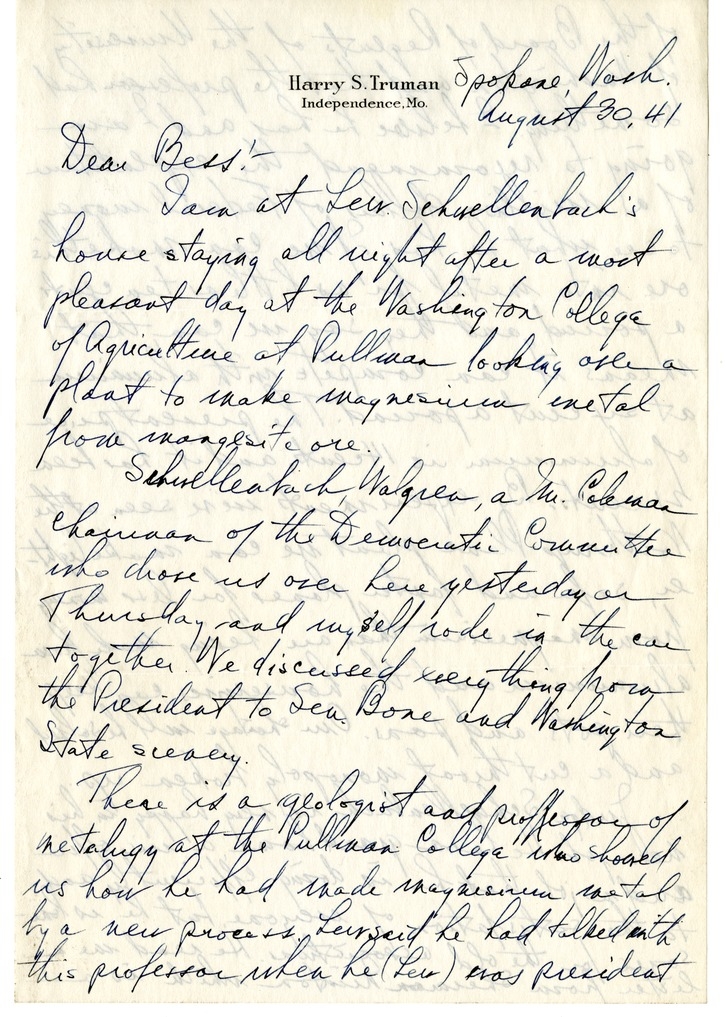 Harry S. Truman
Independence, Mo.
Spokane, Wash.
August 30, 41
Dear Bess:-
I am at Lew. Schwellenbach's
house staying all night after a most
pleasant day at the Washington College
of Agriculture at Pullman looking over a
plant to make magnesium metal
from mangesite ore.
Schwellenbach, Walgren, a Mr. Coleman
chairman of the Democratic Committee
who drove us over here yesterday or
Thursday and myself rode in the car
together. We discussed everything from
the President to Sen. Bone and Washington
State scenery.
There is a geologist and proffessor of
metalurgy at the Pullman College who showed
us how he had made magnesium metal
by a new process. Lew said he had talked with
this professor when he (Lew) was president